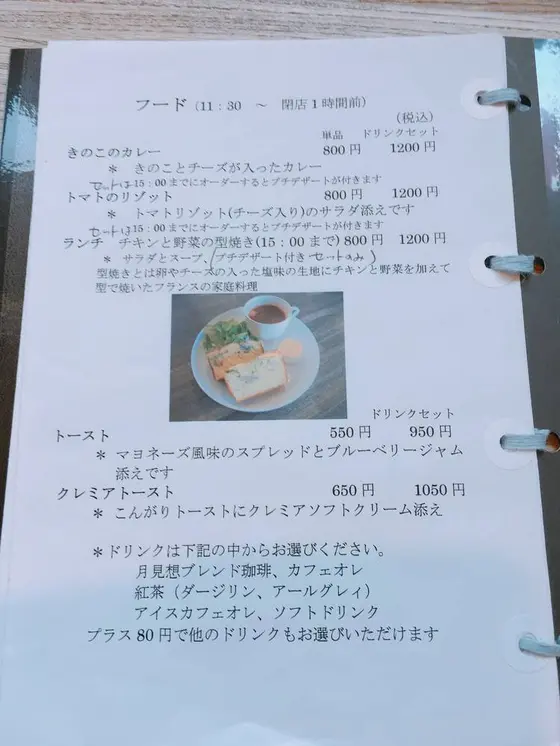 フード(11:30 ～ 閉店1時間前)
(税込)
単品 ドリンクセット
きのこのカレー 800円 1200円
＊ きのことチーズが入ったカレー
セットは15:00までにオーダーするとプチデザートが付きます
トマトのリゾット 800円 1200円
＊ トマトリゾット(チーズ入り)のサラダ添えです
セットは15:00までにオーダーするとプチデザートが付きます
ランチ チキンと野菜の型焼き(15:00まで) 800円 1200円
＊ サラダとスープ、(プチデザート付き セットのみ)
型焼きとは卵やチーズの入った塩味の生地にチキンと野菜を加えて
型で焼いたフランスの家庭料理
ドリンクセット
トースト 550円 950円
＊ マヨネーズ風味のスプレッドとブルーベリージャム
添えです
クレミアトースト 650円 1050円
＊ こんがりトーストにクレミアソフトクリーム添え
＊ドリンクは下記の中からお選びください。
月見想ブレンド珈琲、カフェオレ
紅茶（ダージリン、アールグレィ）
アイスカフェオレ、ソフトドリンク
プラス80円で他のドリンクもお選びいただけます